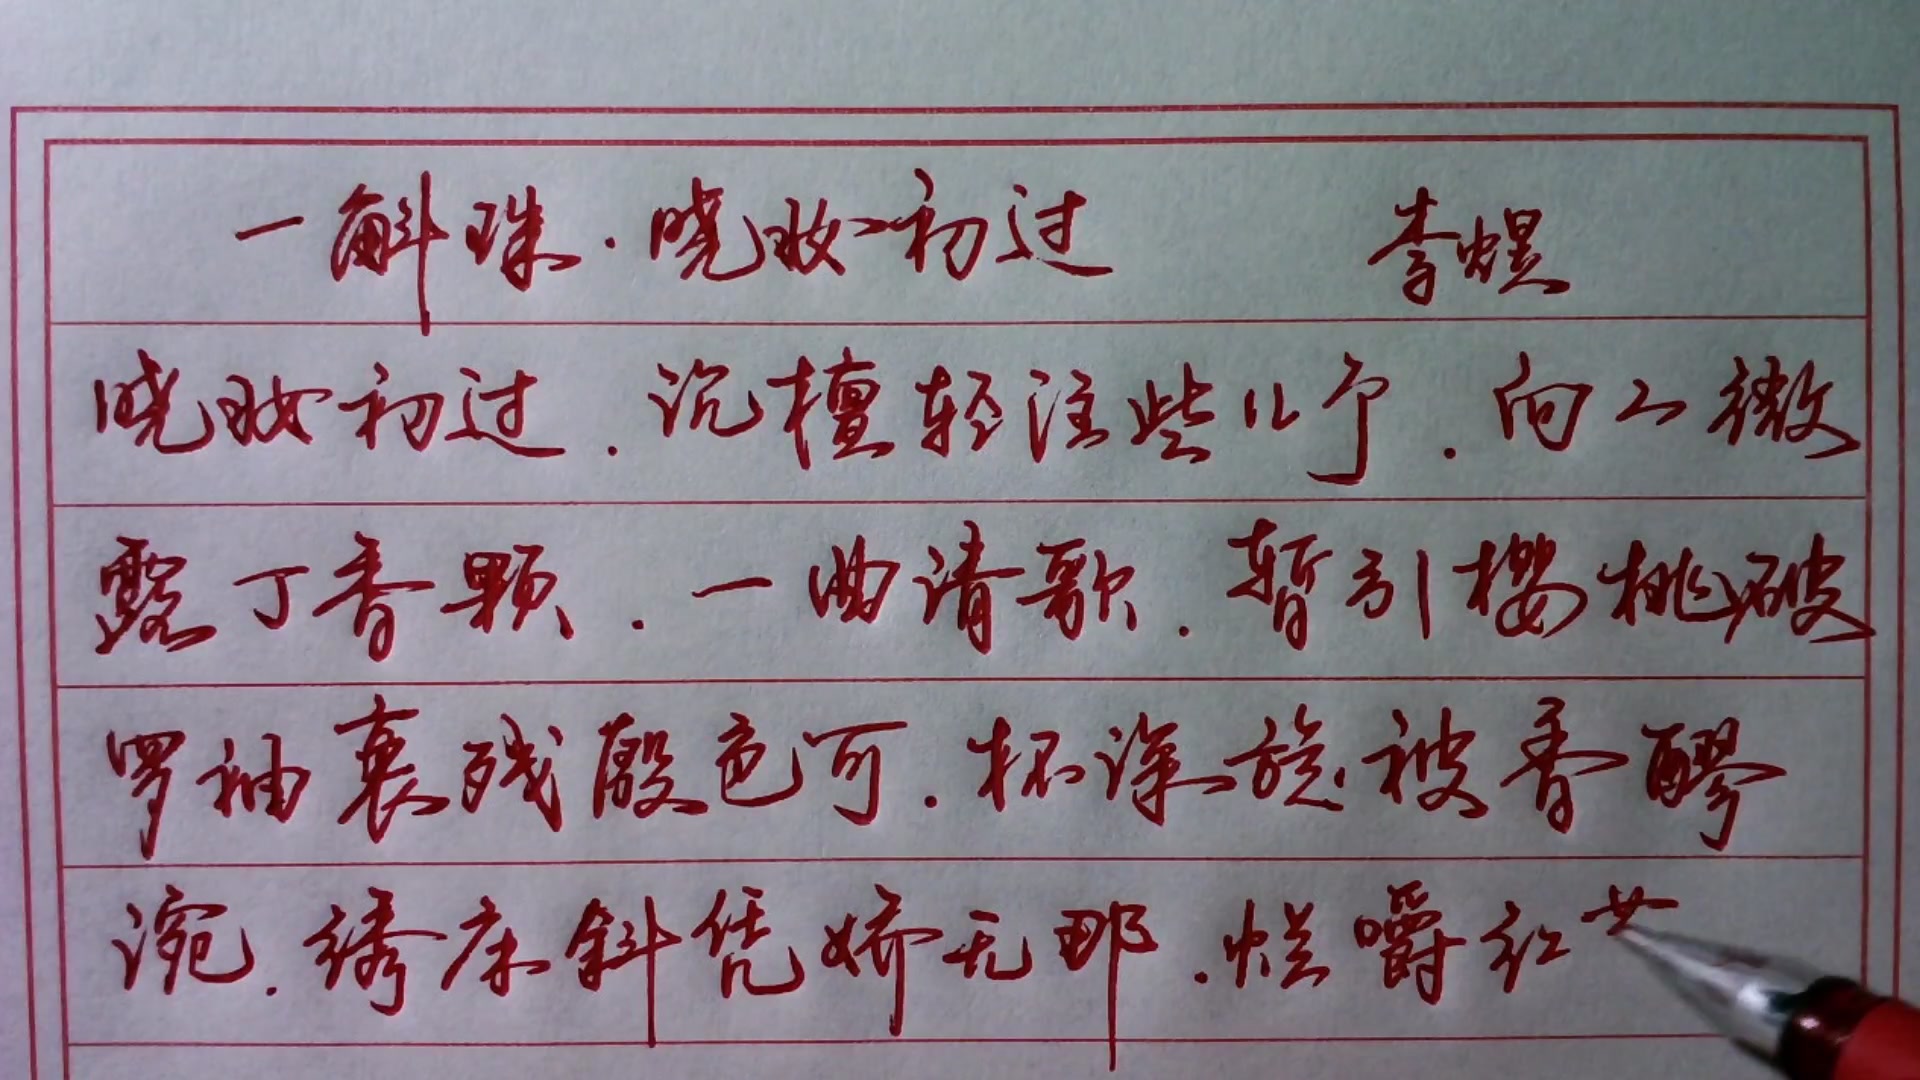 一斛珠·晓妆初过 李煜
晓妆初过.沉檀轻注些儿个.向人微
露丁香颗.一曲清歌.暂引樱桃破
罗袖裛残殷色可.杯深旋被香醪
涴.绣床斜凭娇无那.烂嚼红